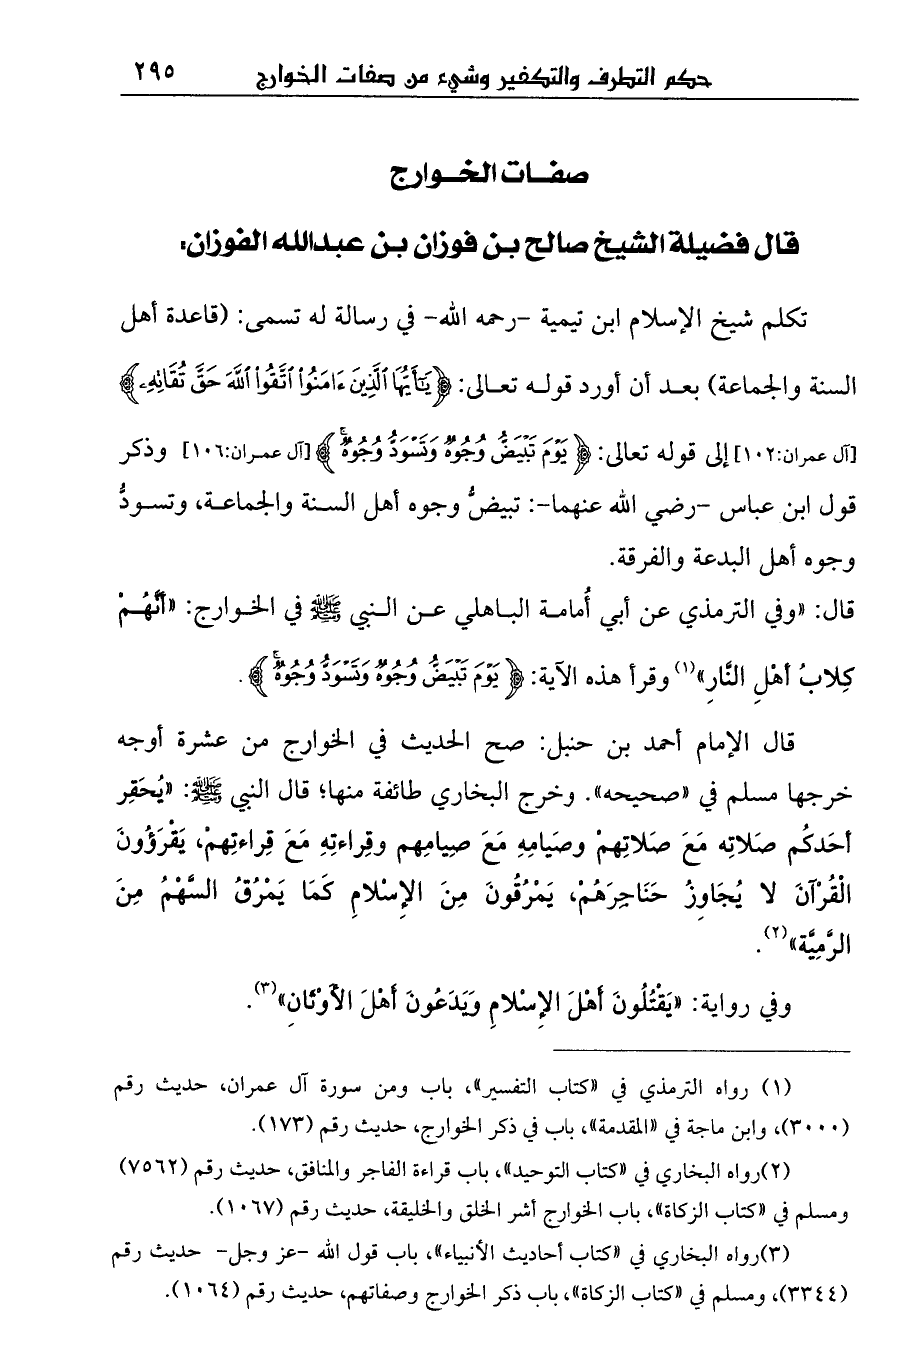 حكم التطرف والتكفير وشيء من صفات الخوارج ٢٩٥
صفـات الخـوارج
قال فضيلة الشيخ صالح بن فوزان بن عبدالله الفوزان:
تكلم شيخ الإسلام ابن تيمية -رحمه الله- في رسالة له تسمى: (قاعدة أهل
السنة والجماعة) بعـد أن أورد قولـه تعـالى: ﴿يَٰٓأَيُّهَا ٱلَّذِينَ ءَامَنُواْ ٱتَّقُواْ ٱللَّهَ حَقَّ تُقَاتِهِۦ﴾
[آل عمران:١٠٢] إلى قوله تعالى: ﴿يَوْمَ تَبْيَضُّ وُجُوهٌ وَتَسْوَدُّ وُجُوهٌ﴾ [آل عمـران:١٠٦] وذكر
قول ابن عباس -رضي الله عنهما-: تبيضُّ وجوه أهل السـنة والجماعـة، وتسـودُّ
وجوه أهل البدعة والفرقة.
قال: «وفي الترمذي عن أبي أُمامـة البـاهلي عـن النـبي ﷺ في الخـوارج: «أَنَّهُـمْ
كِلابُ أَهْلِ النَّارِ»(١) وقرأ هذه الآية: ﴿يَوْمَ تَبْيَضُّ وُجُوهٌ وَتَسْوَدُّ وُجُوهٌ﴾.
قال الإمام أحمد بن حنبل: صح الحديث في الخوارج من عشرة أوجه
خرجها مسلم في «صحيحه». وخرج البخاري طائفة منها؛ قال النبي ﷺ: «يُحَقِر
أَحَدكُم صَلاتِه مَعَ صَلاتِهِمْ وصَيامِهِ مَعَ صِيامِهِم وقِراءتِهِ مَعَ قِراءتِهِمْ، يَقْرَؤُونَ
الْقُرْآنَ لا يُجَاوِزُ حَنَاجِرَهُمْ، يَمْرُقُونَ مِنَ الإِسْلامِ كَمَا يَمْرُقُ السَّهْمُ مِنَ
الرَّمِيَّة»(٢).
وفي رواية: «يَقْتُلُونَ أَهْلَ الإِسْلامِ وَيَدَعُونَ أَهْلَ الأَوْثَانِ»(٣).
(١) رواه الترمذي في «كتاب التفسير»، باب ومن سورة آل عمران، حديث رقم
(٣٠٠٠)، وابن ماجة في «المقدمة»، باب في ذكر الخوارج، حديث رقم (١٧٣).
(٢)رواه البخاري في «كتاب التوحيد»، باب قراءة الفاجر والمنافق، حديث رقم (٧٥٦٢)
ومسلم في «كتاب الزكاة»، باب الخوارج أشر الخلق والخليقة، حديث رقم (١٠٦٧).
(٣)رواه البخاري في «كتاب أحاديث الأنبياء»، باب قول الله -عز وجل- حديث رقم
(٣٣٤٤)، ومسلم في «كتاب الزكاة»، باب ذكر الخوارج وصفاتهم، حديث رقم (١٠٦٤).